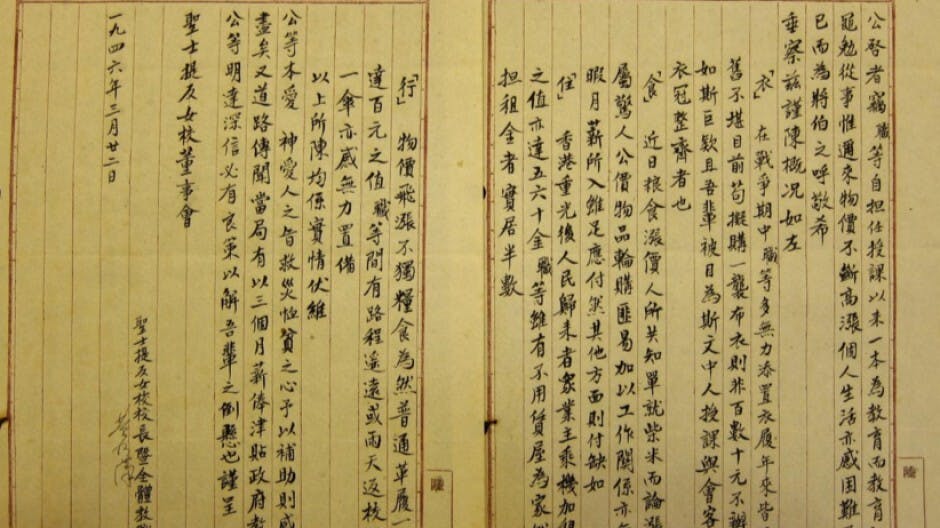 公啓者竊職等自担任授課以来一本為教育而教育
黽勉從事惟邇来物價不斷高漲個人生活亦感困難
已而為將伯之呼敬希
垂察兹謹陳概况如左
「衣」 在戰爭期中職等多無力添置衣履年来皆
舊不堪目前苟擬購一襲布衣則非百數十元不辦
如斯巨欵且吾輩被目為斯文中人授課與會客
衣冠整齊者也
「食」 近日粮食漲價人所共知單就柴米而論漲
屬驚人公價物品輪購匪易加以工作関係亦
暇月薪所入雖足應付然其他方面則付缺如
「住」 香港重光後人民歸来者衆業主乘機加租
之值亦達五六十金職等雖有不用賃屋為家
担租金者實居半數
「行」 物價飛漲不獨糧食為然普通革履一
達百元之值職等間有路程遥遠或雨天返校
一傘亦感無力置備
以上所陳均係實情伏維
公等本愛 神愛人之旨救災恤貧之心予以補助則感
盡矣又道路傳聞當局有以三個月薪俸津貼政府教
公等明達深信必有良策以解吾輩之倒懸也謹呈
聖士提反女校董事會
聖士提反女校校長暨全體教
一九四六年三月廿二日